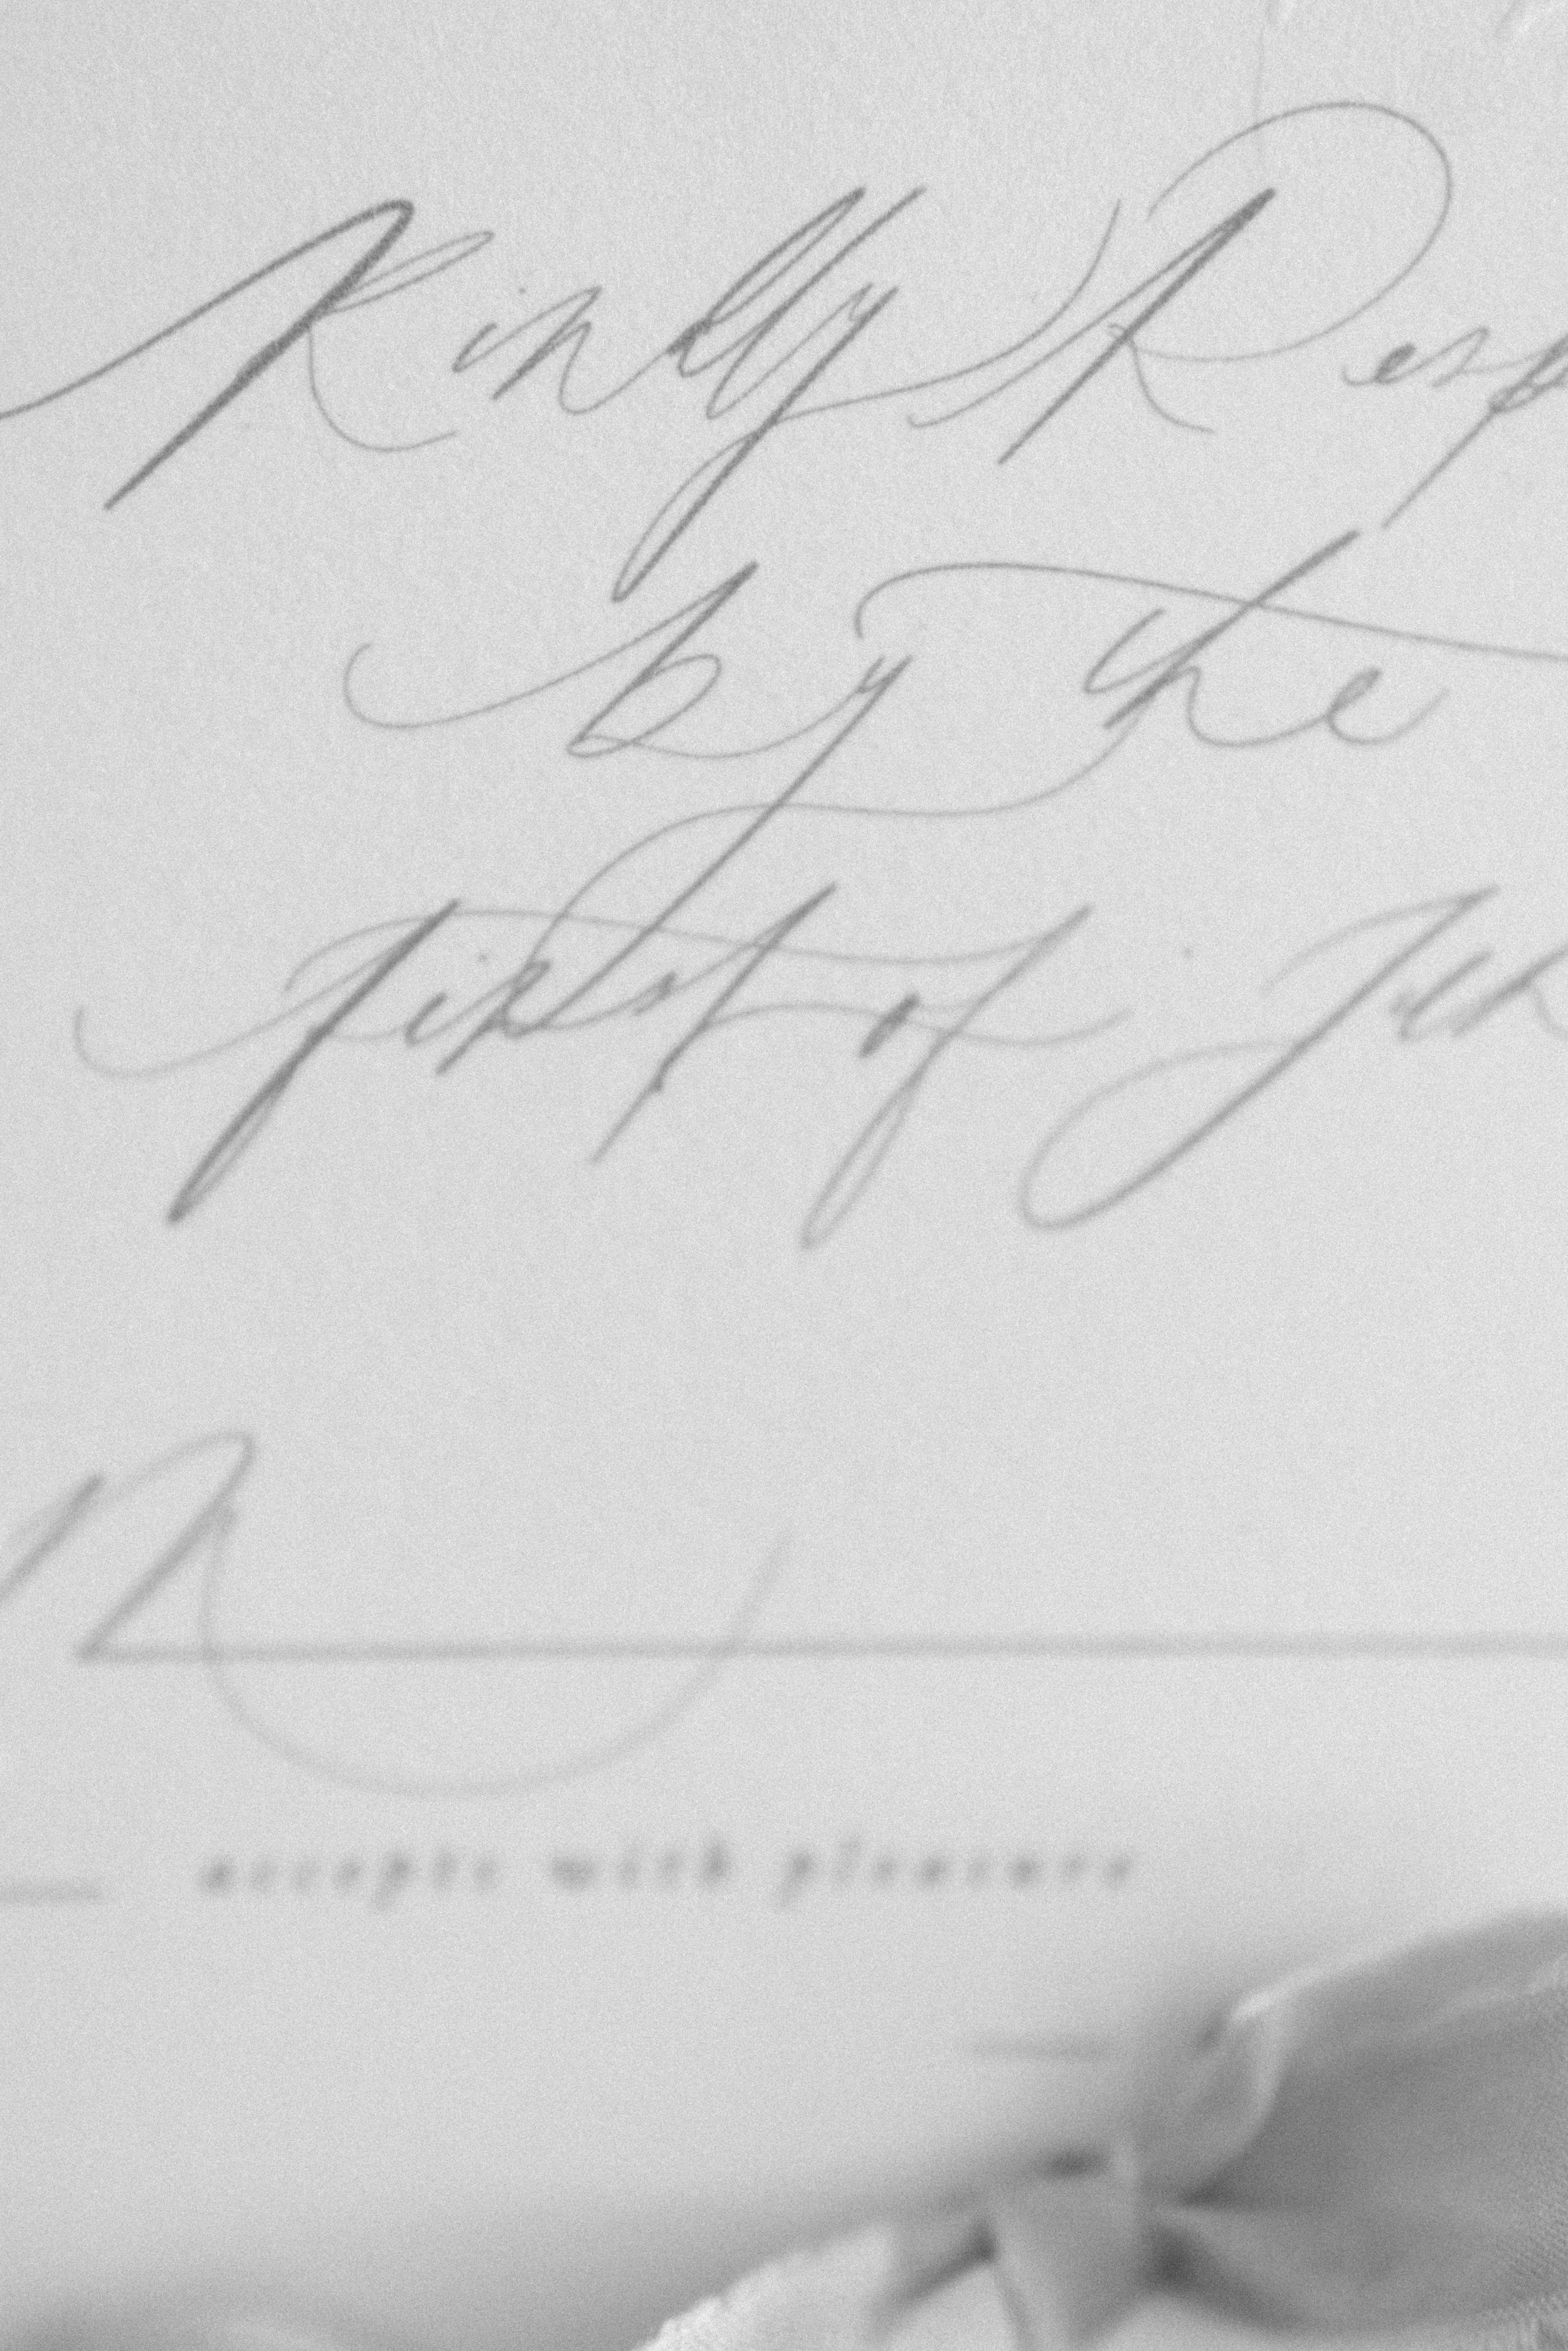 Kindly Resp
by the
first of Jun
M
accepts with pleasure